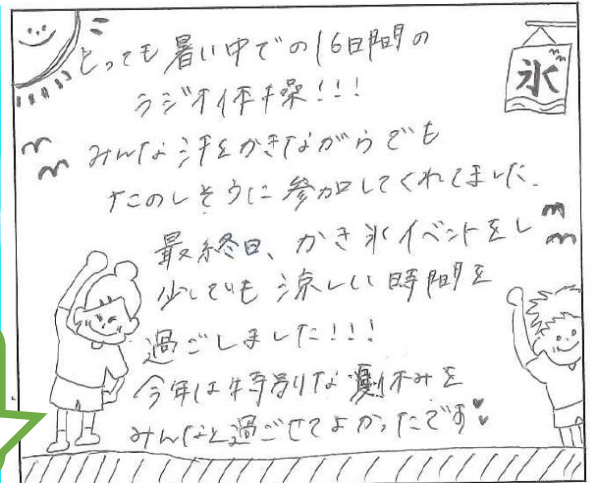 とっても暑い中での16日間の
ラジオ体操!!!
みんな汗をかきながらでも
たのしそうに参加してくれてました.
最終日、かき氷イベントをし
少しでも涼しい時間を
過ごしました!!!
今年は特別な夏休みを
みんなと過ごせてよかったです♥
氷